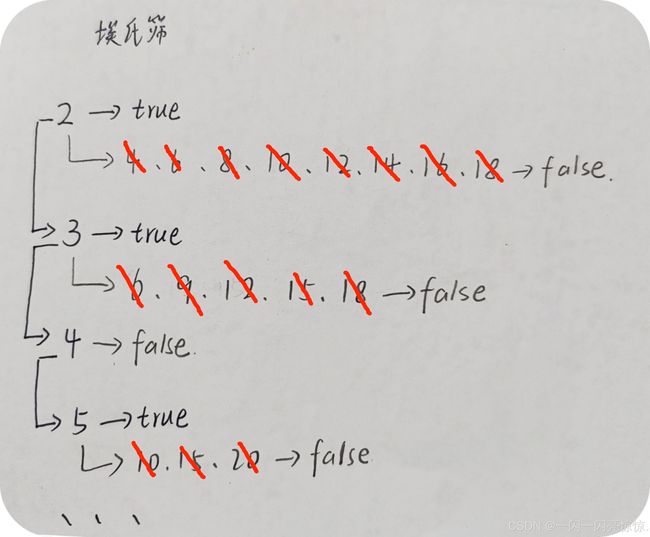 埃氏筛
2 → true
4 . 6 . 8 . 10 . 12 . 14 . 16 . 18 → false.
3 → true
6 . 9 . 12 . 15 . 18 → false
4 → false.
5 → true
10 . 15 . 20 → false
、、、
CSDN @一闪一闪亮惊惊.